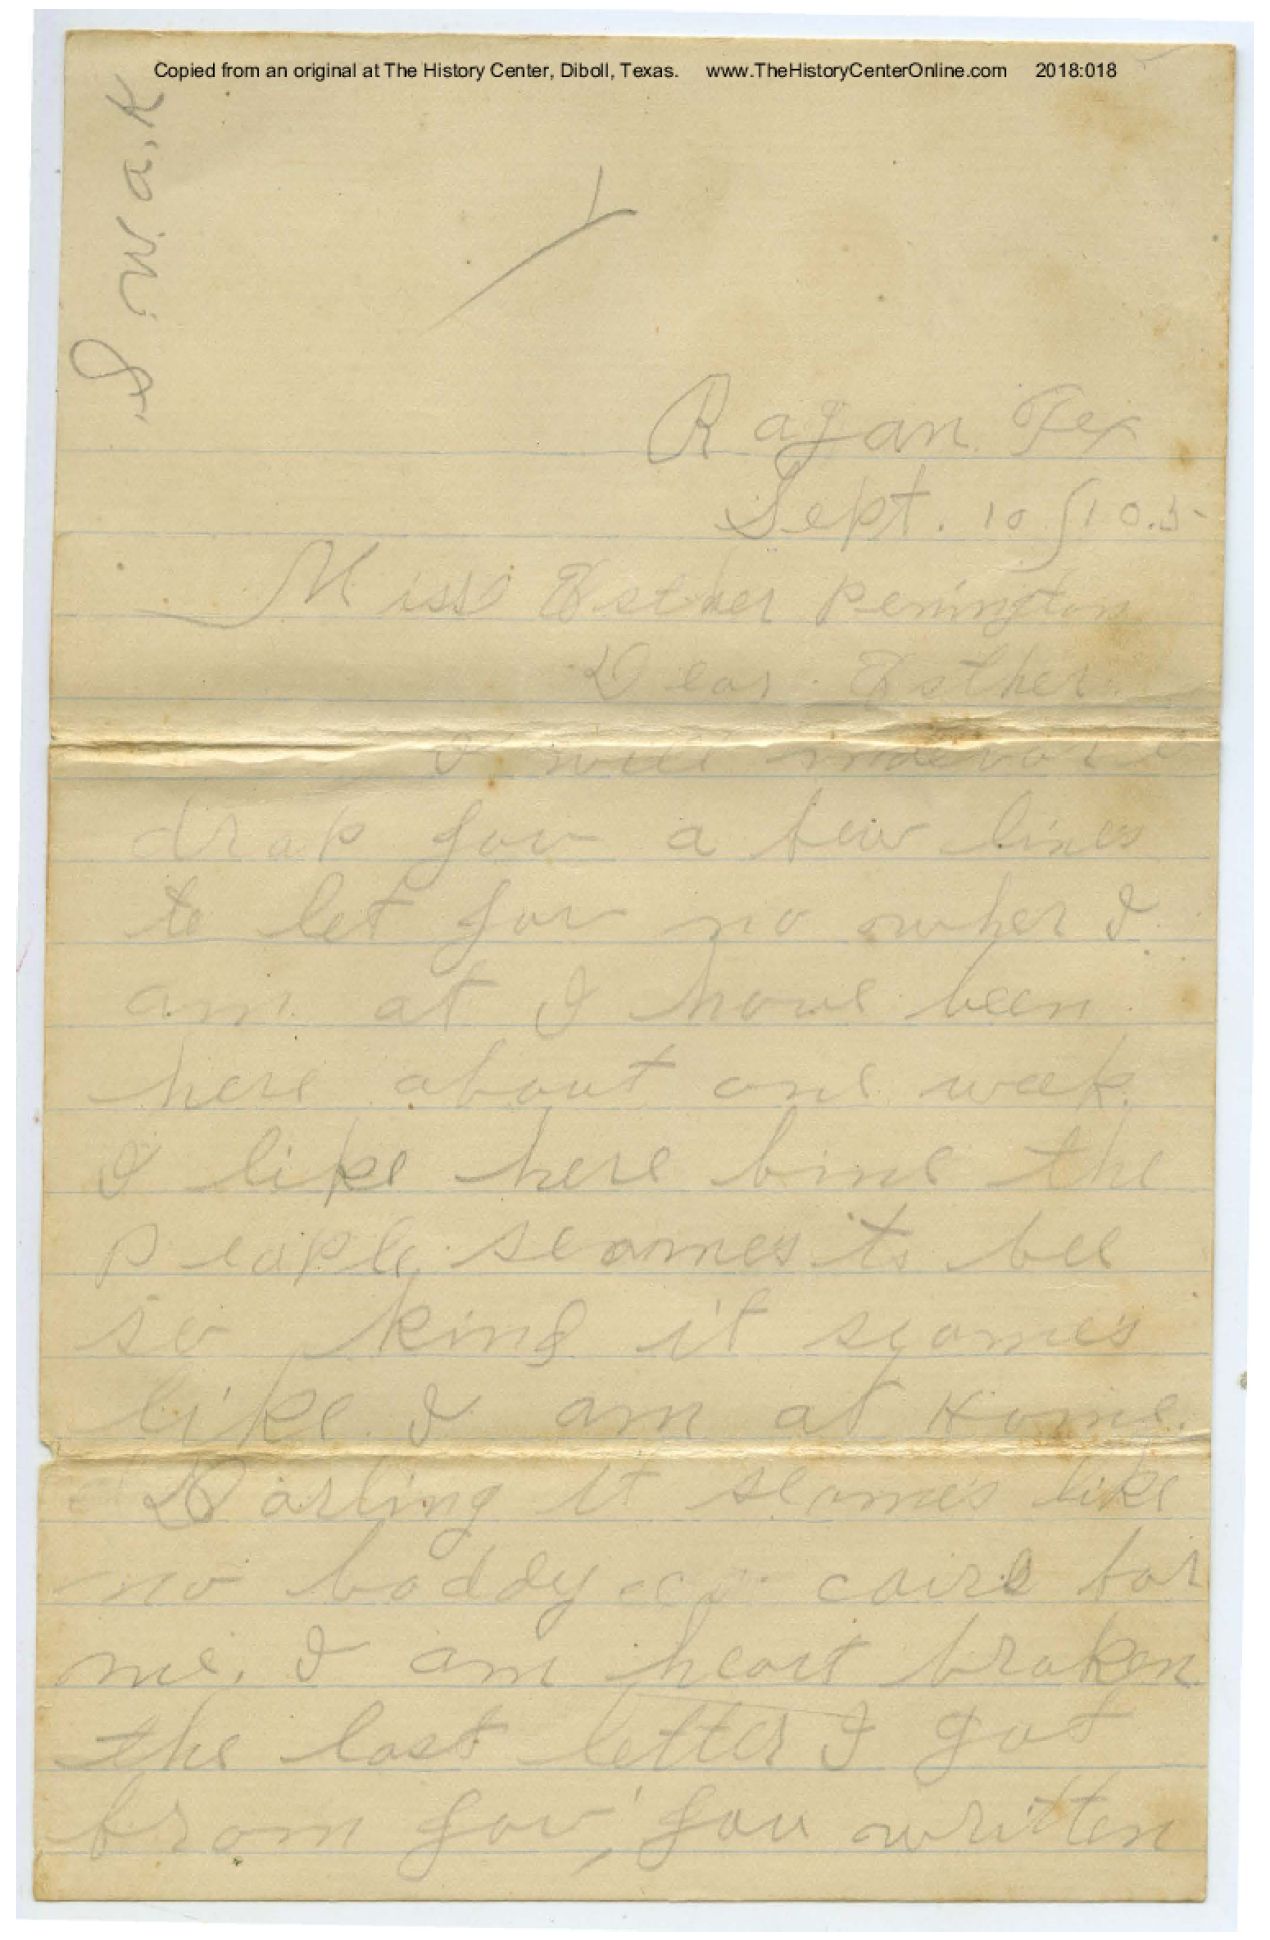 Copied from an original at The History Center, Diboll, Texas. www.TheHistoryCenterOnline.com 2018:018
S. W. a. K
Ragan Tex
Sept. 10
Miss Esther Penington
Dear Esther
I will
drap you a few lines
to let you no wher I
am at I have been
here about one week.
I like here fine the
People seames to bee
so kind it seames
like I am at Home.
Darling it seames like
no boddy caire for
me. I am heart braken
the last letter I got
from you, you written